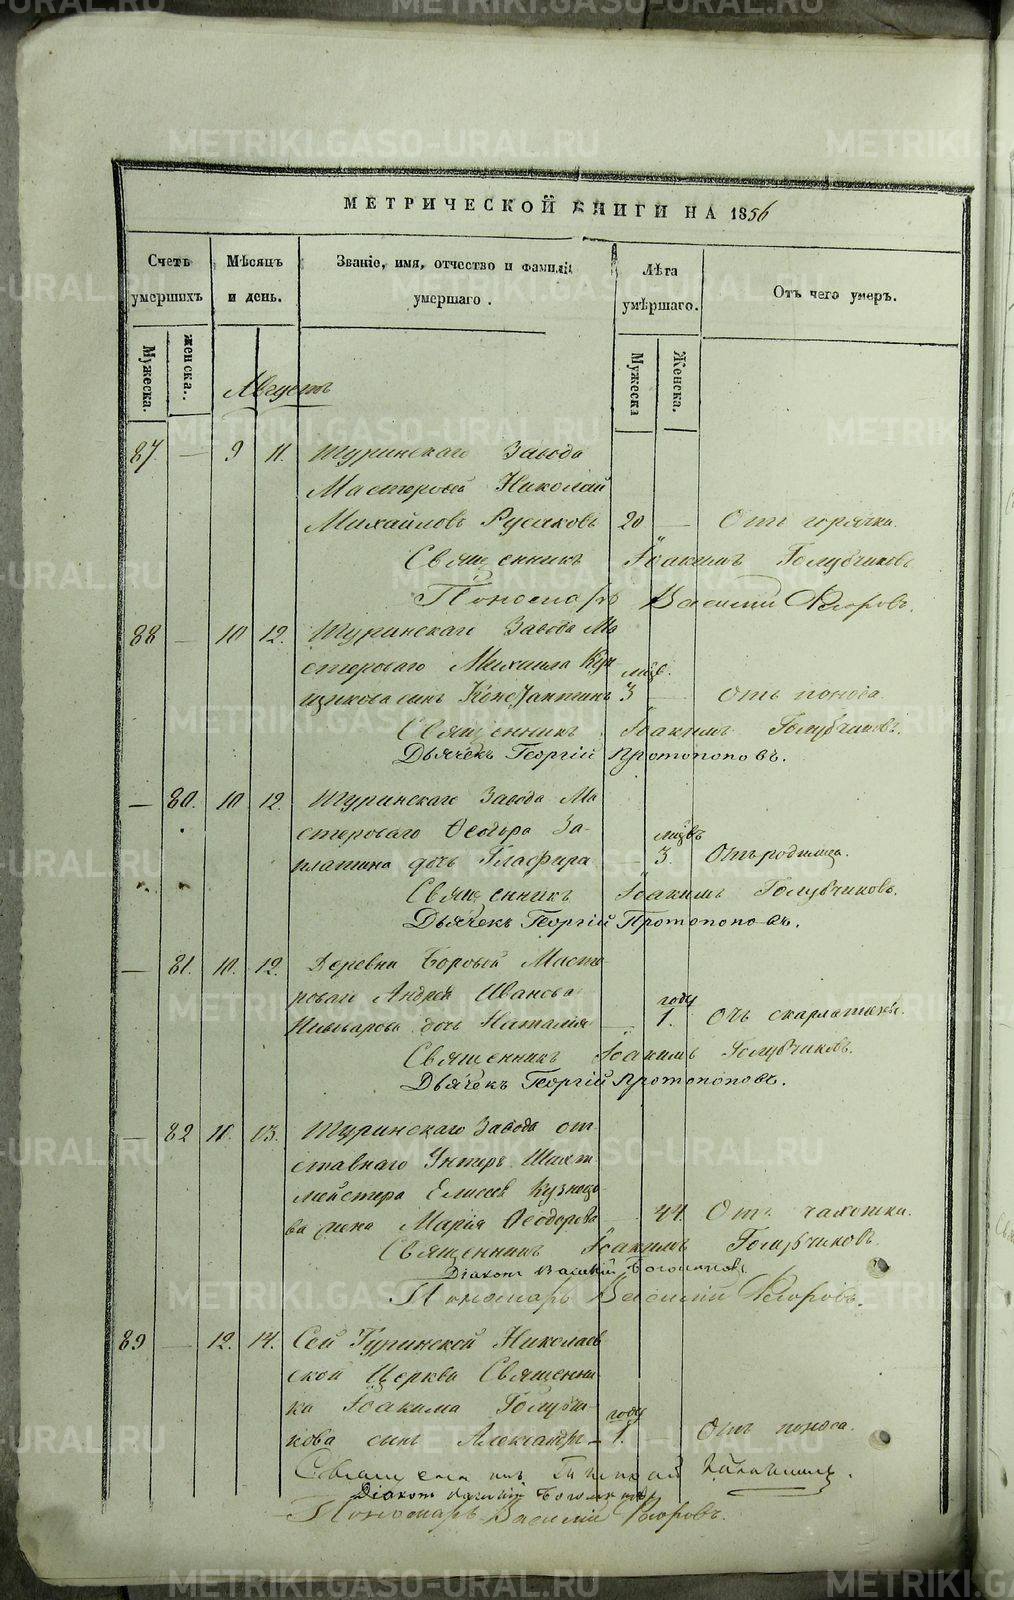 МЕТРИЧЕСКОЙ КНИГИ НА 1856
Счетъ умершихъ
Мѣсяцъ и день.
Званіе, имя, отчество и фамилія умершаго.
Лѣта умѣршаго.
Отъ чего умеръ.
Мужеска.
женска.
Мужеска
Женска.
Августъ
87. — 9 11. Туринскаго Завода
Мастеровой Николай
Михайловъ Русаковъ 20 — Отъ горячки.
Священникъ Іоакимъ Голубчиковъ
Пономарь Василий Флоровъ.
88 — 10 12. Туринскаго Завода Ма
стероваго Михаила
сынъ Константинъ мѣс. 3 — Отъ поноса
Священникъ Іоакимъ Голубчиковъ.
Дьячекъ Георгій Протопоповъ.
— 80. 10 12. Туринскаго Завода Ма
стероваго Ѳеодора За-
платина дочь Глафира — мѣс. 3. Отъ родимца.
Священникъ Іоакимъ Голубчиковъ.
Дьячекъ Георгій Протопоповъ.
— 81. 10. 12. Деревни Боровой Масте
роваго Андрея Иванова
дочь Наталія — году 1. Отъ скарлатины.
Священникъ Іоакимъ Голубчиковъ.
Дьячекъ Георгій Протопоповъ.
— 82 11. 13. Туринскаго Завода от
ставнаго Унтеръ Шихт
мейстера Елисея Кузнецо-
ва жена Марія Ѳеодорова 44 Отъ чахотки.
Священникъ Іоакимъ Голубчиковъ.
Діаконъ Василій
Пономарь Василий Флоровъ.
89 — 12. 14. Сей Туринской Николаев
ской Церкви Священни
ка Іоакима Голубчи-
кова сынъ Александръ — году 1. Отъ поноса.
Священникъ
Діаконъ Василій
Пономарь Василий Флоровъ.
METRIKI.GASO-URAL.RU